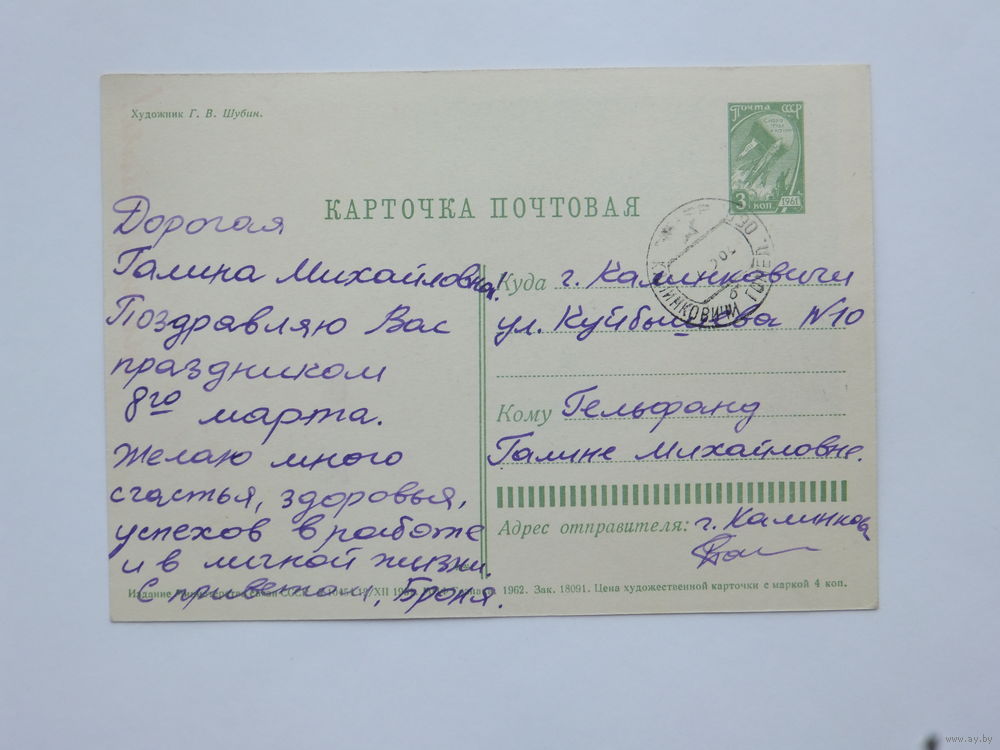 Художник Г. В. Шубин.
Почта СССР
3 коп
1961
КАРТОЧКА ПОЧТОВАЯ
Дорогая
Галина Михайловна!
Поздравляю Вас
праздником
8го марта.
Желаю много
счастья, здоровья,
успехов в работе
и в личной жизни
С приветом, Броня.
Куда г. Калинковичи
ул. Куйбышева N10
Кому Гельфанд
Галине Михайловне.
Адрес отправителя: г. Калинков
Издание Министерства связи СССР 1962. Зак. 18091. Цена художественной карточки с маркой 4 коп.
www.ay.by